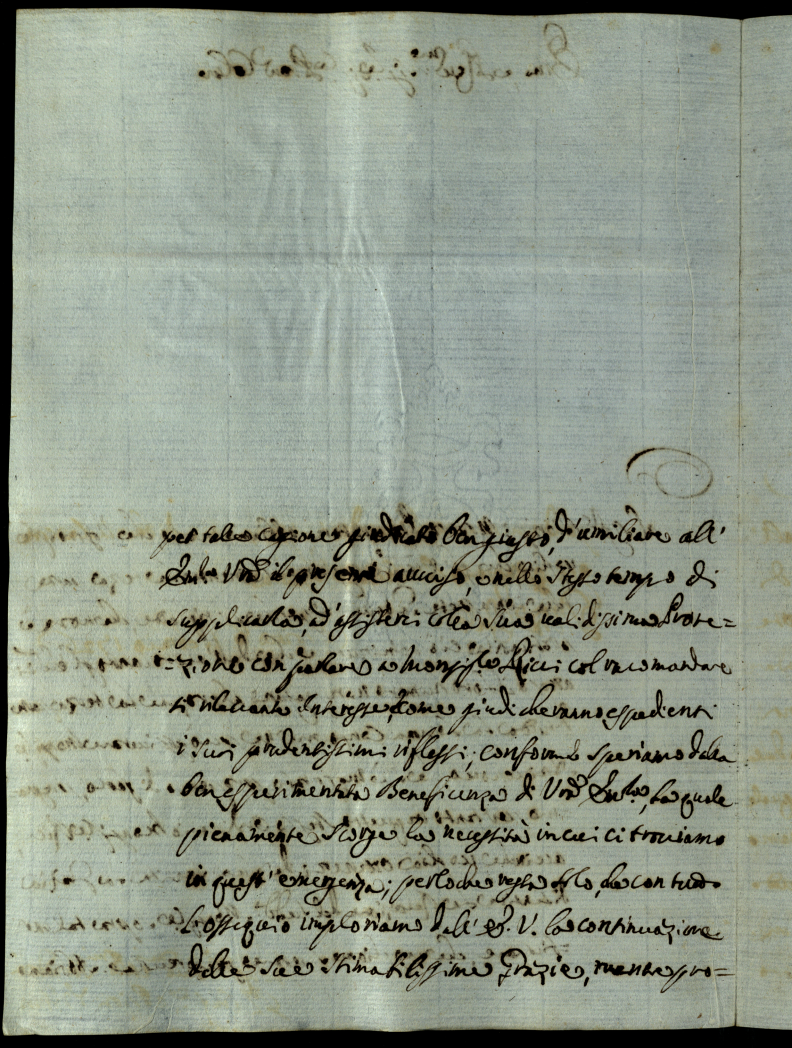 per tale cagione giudicato ben giusto, d'umiliare all'
Emza Vrã il presente auuiso, e nello stesso tempo di
supplicarla, ad assisterci colla sua ualidissima Prote=
=zione con parlare a Monsig.re Ricci col raccomandare
rileuante Interesse, come giudicheranno espedienti
i suoi prudentissimi riflessi, conforme speriamo dalla
ben esperimentata Beneficenza di Vrã la quale
pienamente scorge la necessità in cui ci trouiamo
in quest'emergenza; perloche resta solo, che con tutto
l'ossequio imploriamo dall' E. V. la continuazione
delle sue stimabilissime Grazie, mentre pro=